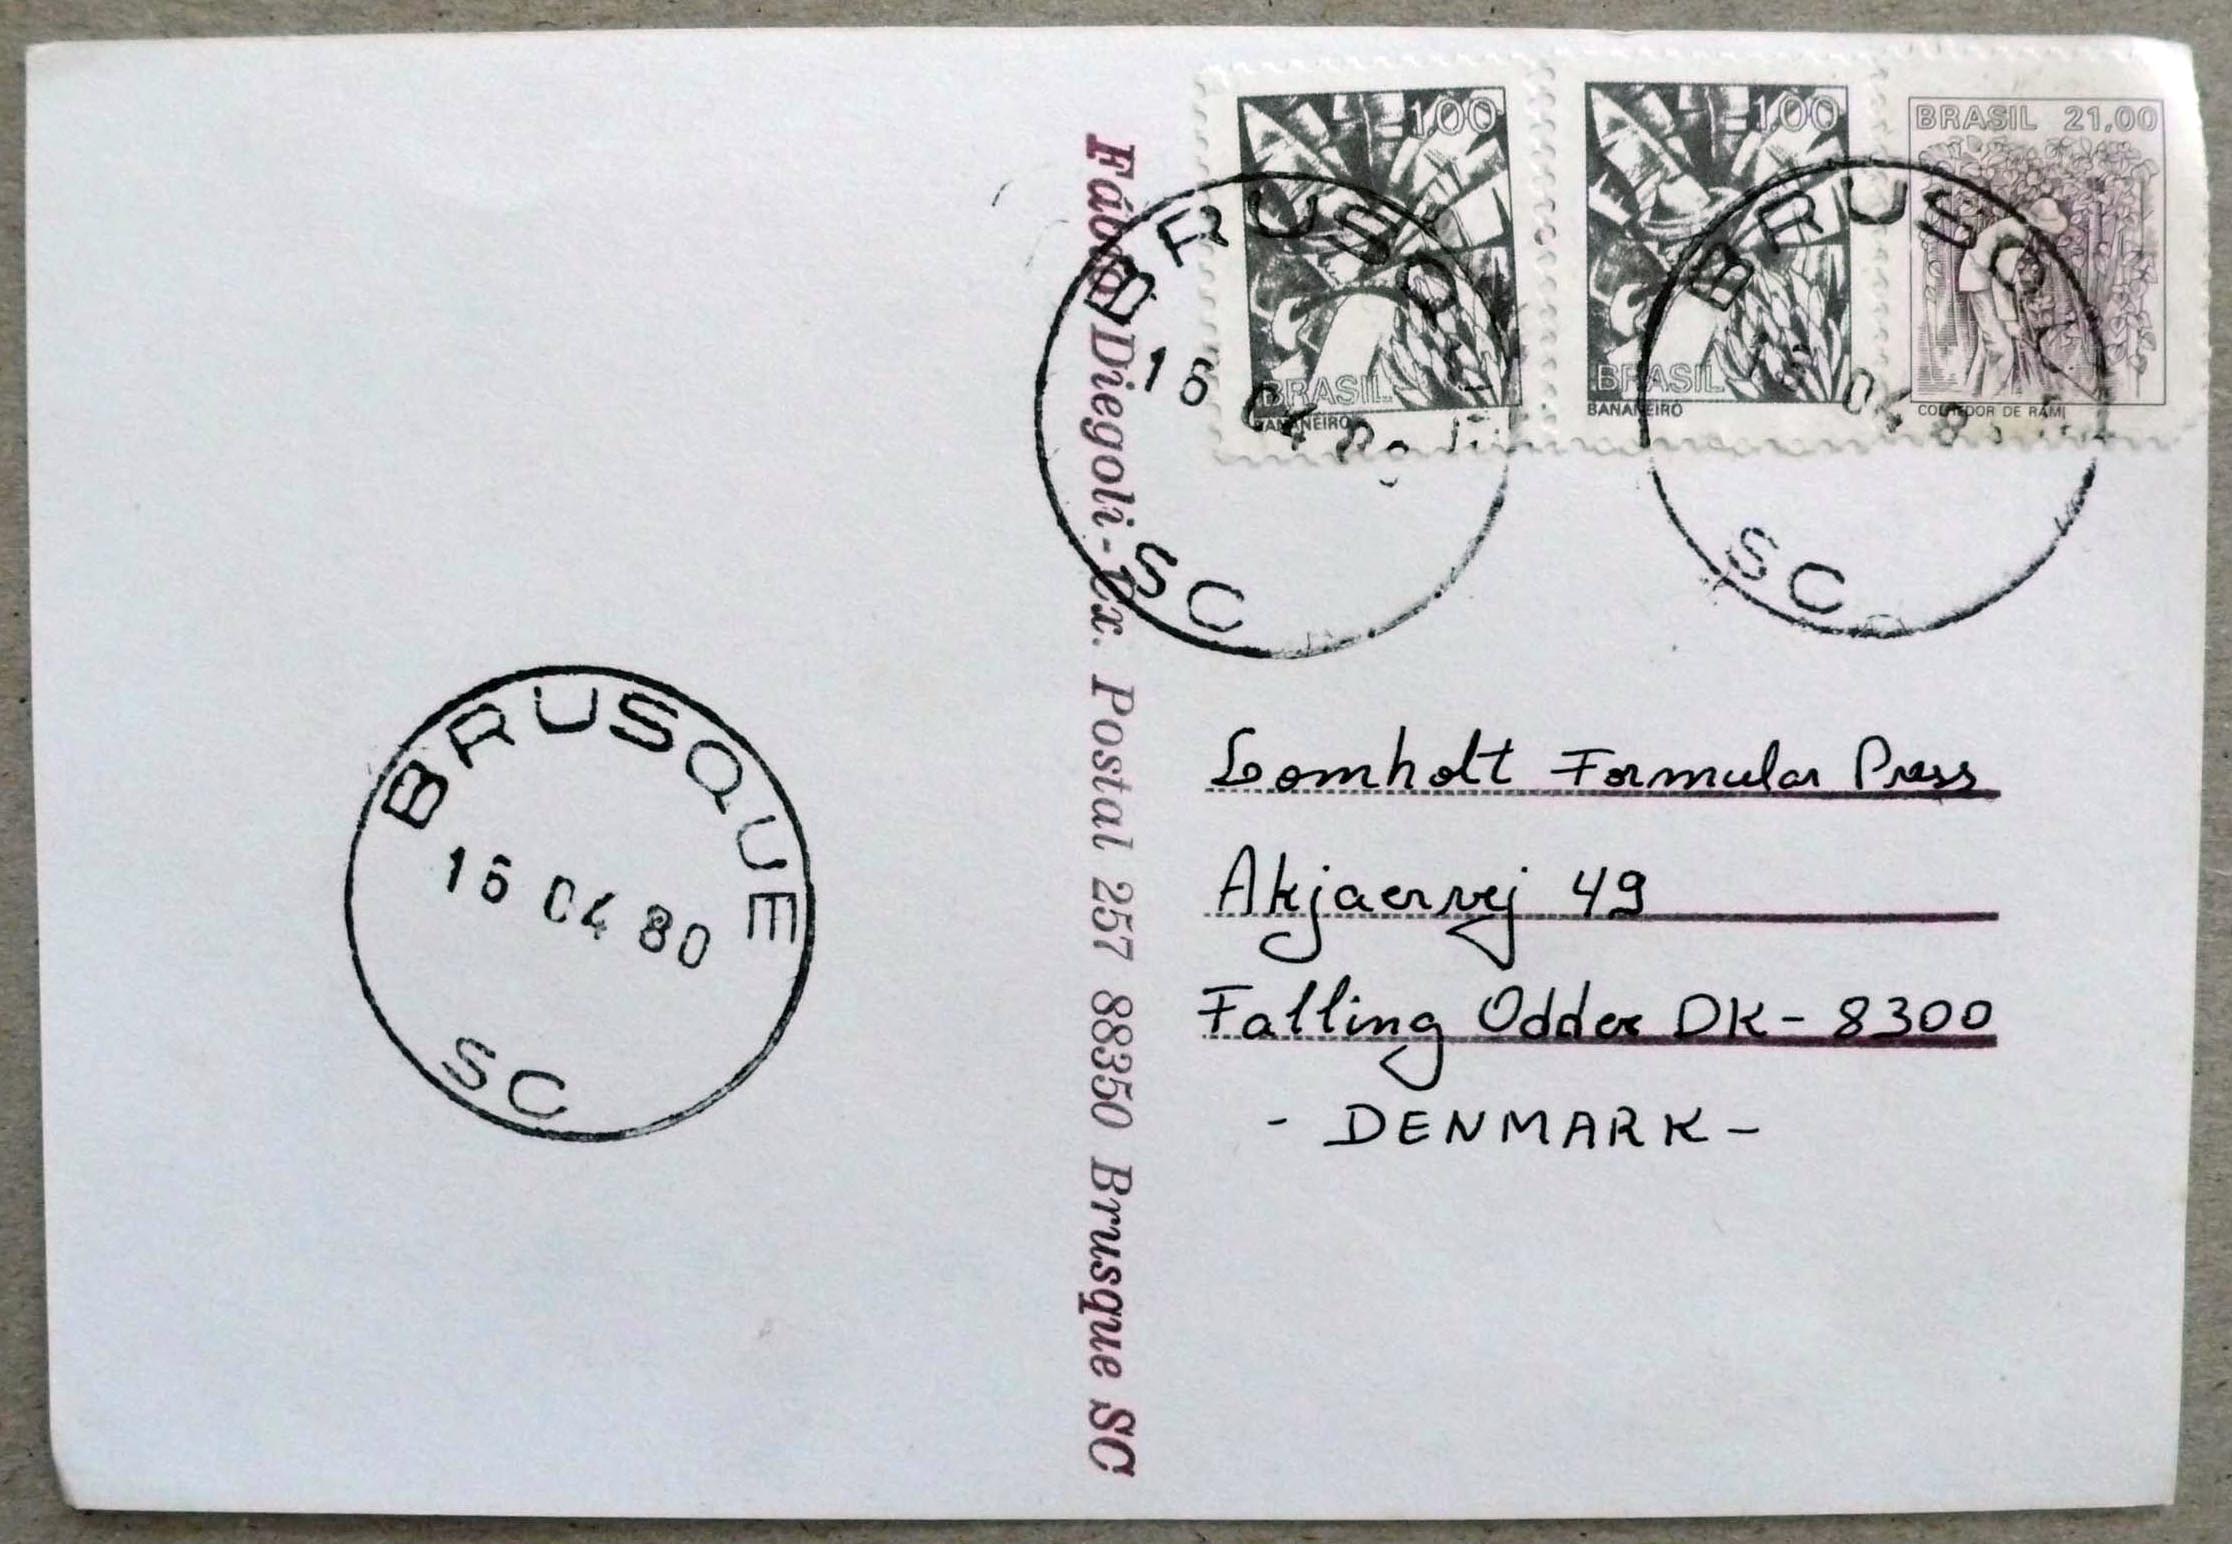 1,00
BRASIL
BANANEIRO
1,00
BRASIL
BANANEIRO
BRASIL 21,00
COLHEDOR DE RAMI
BRUSQU
16 04 80
SC
BRUSQU
16 04 8
SC
Fábio Diegoli - Cx. Postal 257 88350 Brusque SC
BRUSQUE
16 04 80
SC
Lomholt Formular Press
Akjaervej 49
Falling Odder DK - 8300
- DENMARK -